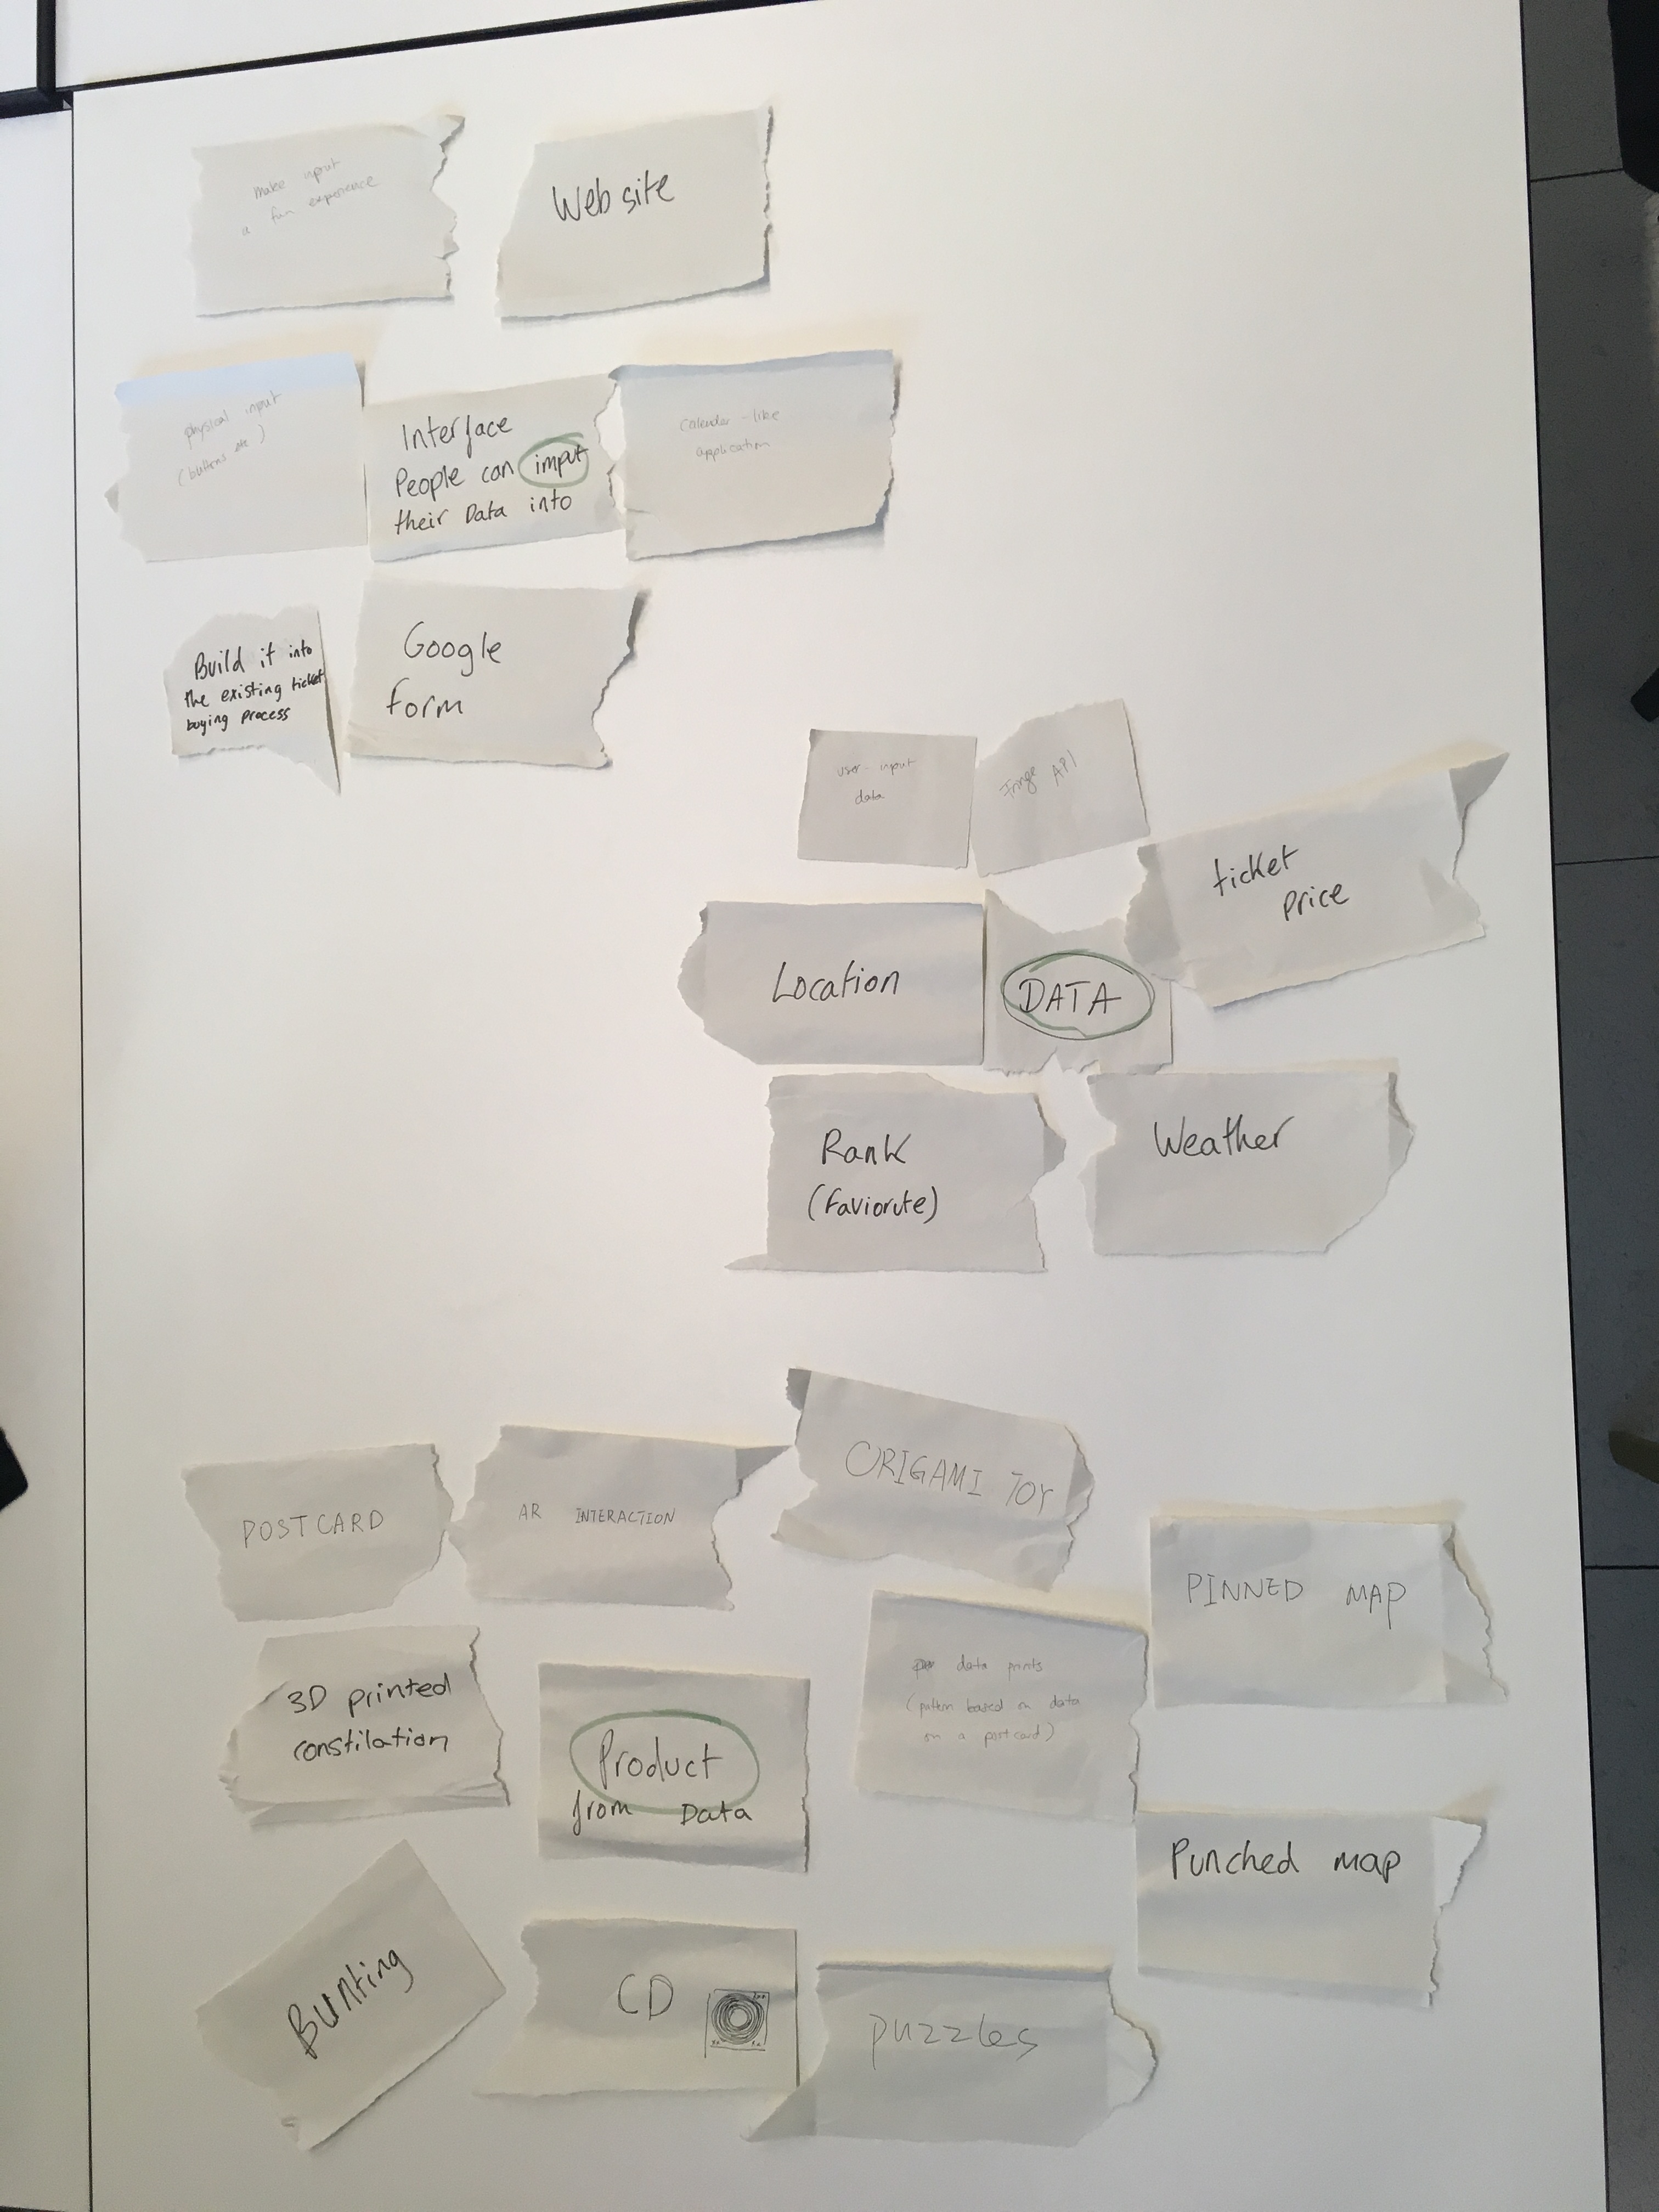 make input
a fun experience
Website
physical input
(buttons etc)
Interface
People can imput
their Data into
Calender-like
application
Build it into
the existing ticket
buying process
Google
form
user-input
data
Fringe API
ticket
price
Location
DATA
Rank
(faviorute)
Weather
POSTCARD
AR INTERACTION
ORIGAMI TOY
PINNED MAP
3D printed
constilation
Product
from Data
data prints
(pattern based on data
on a postcard)
Punched map
Bunting
CD
puzzles